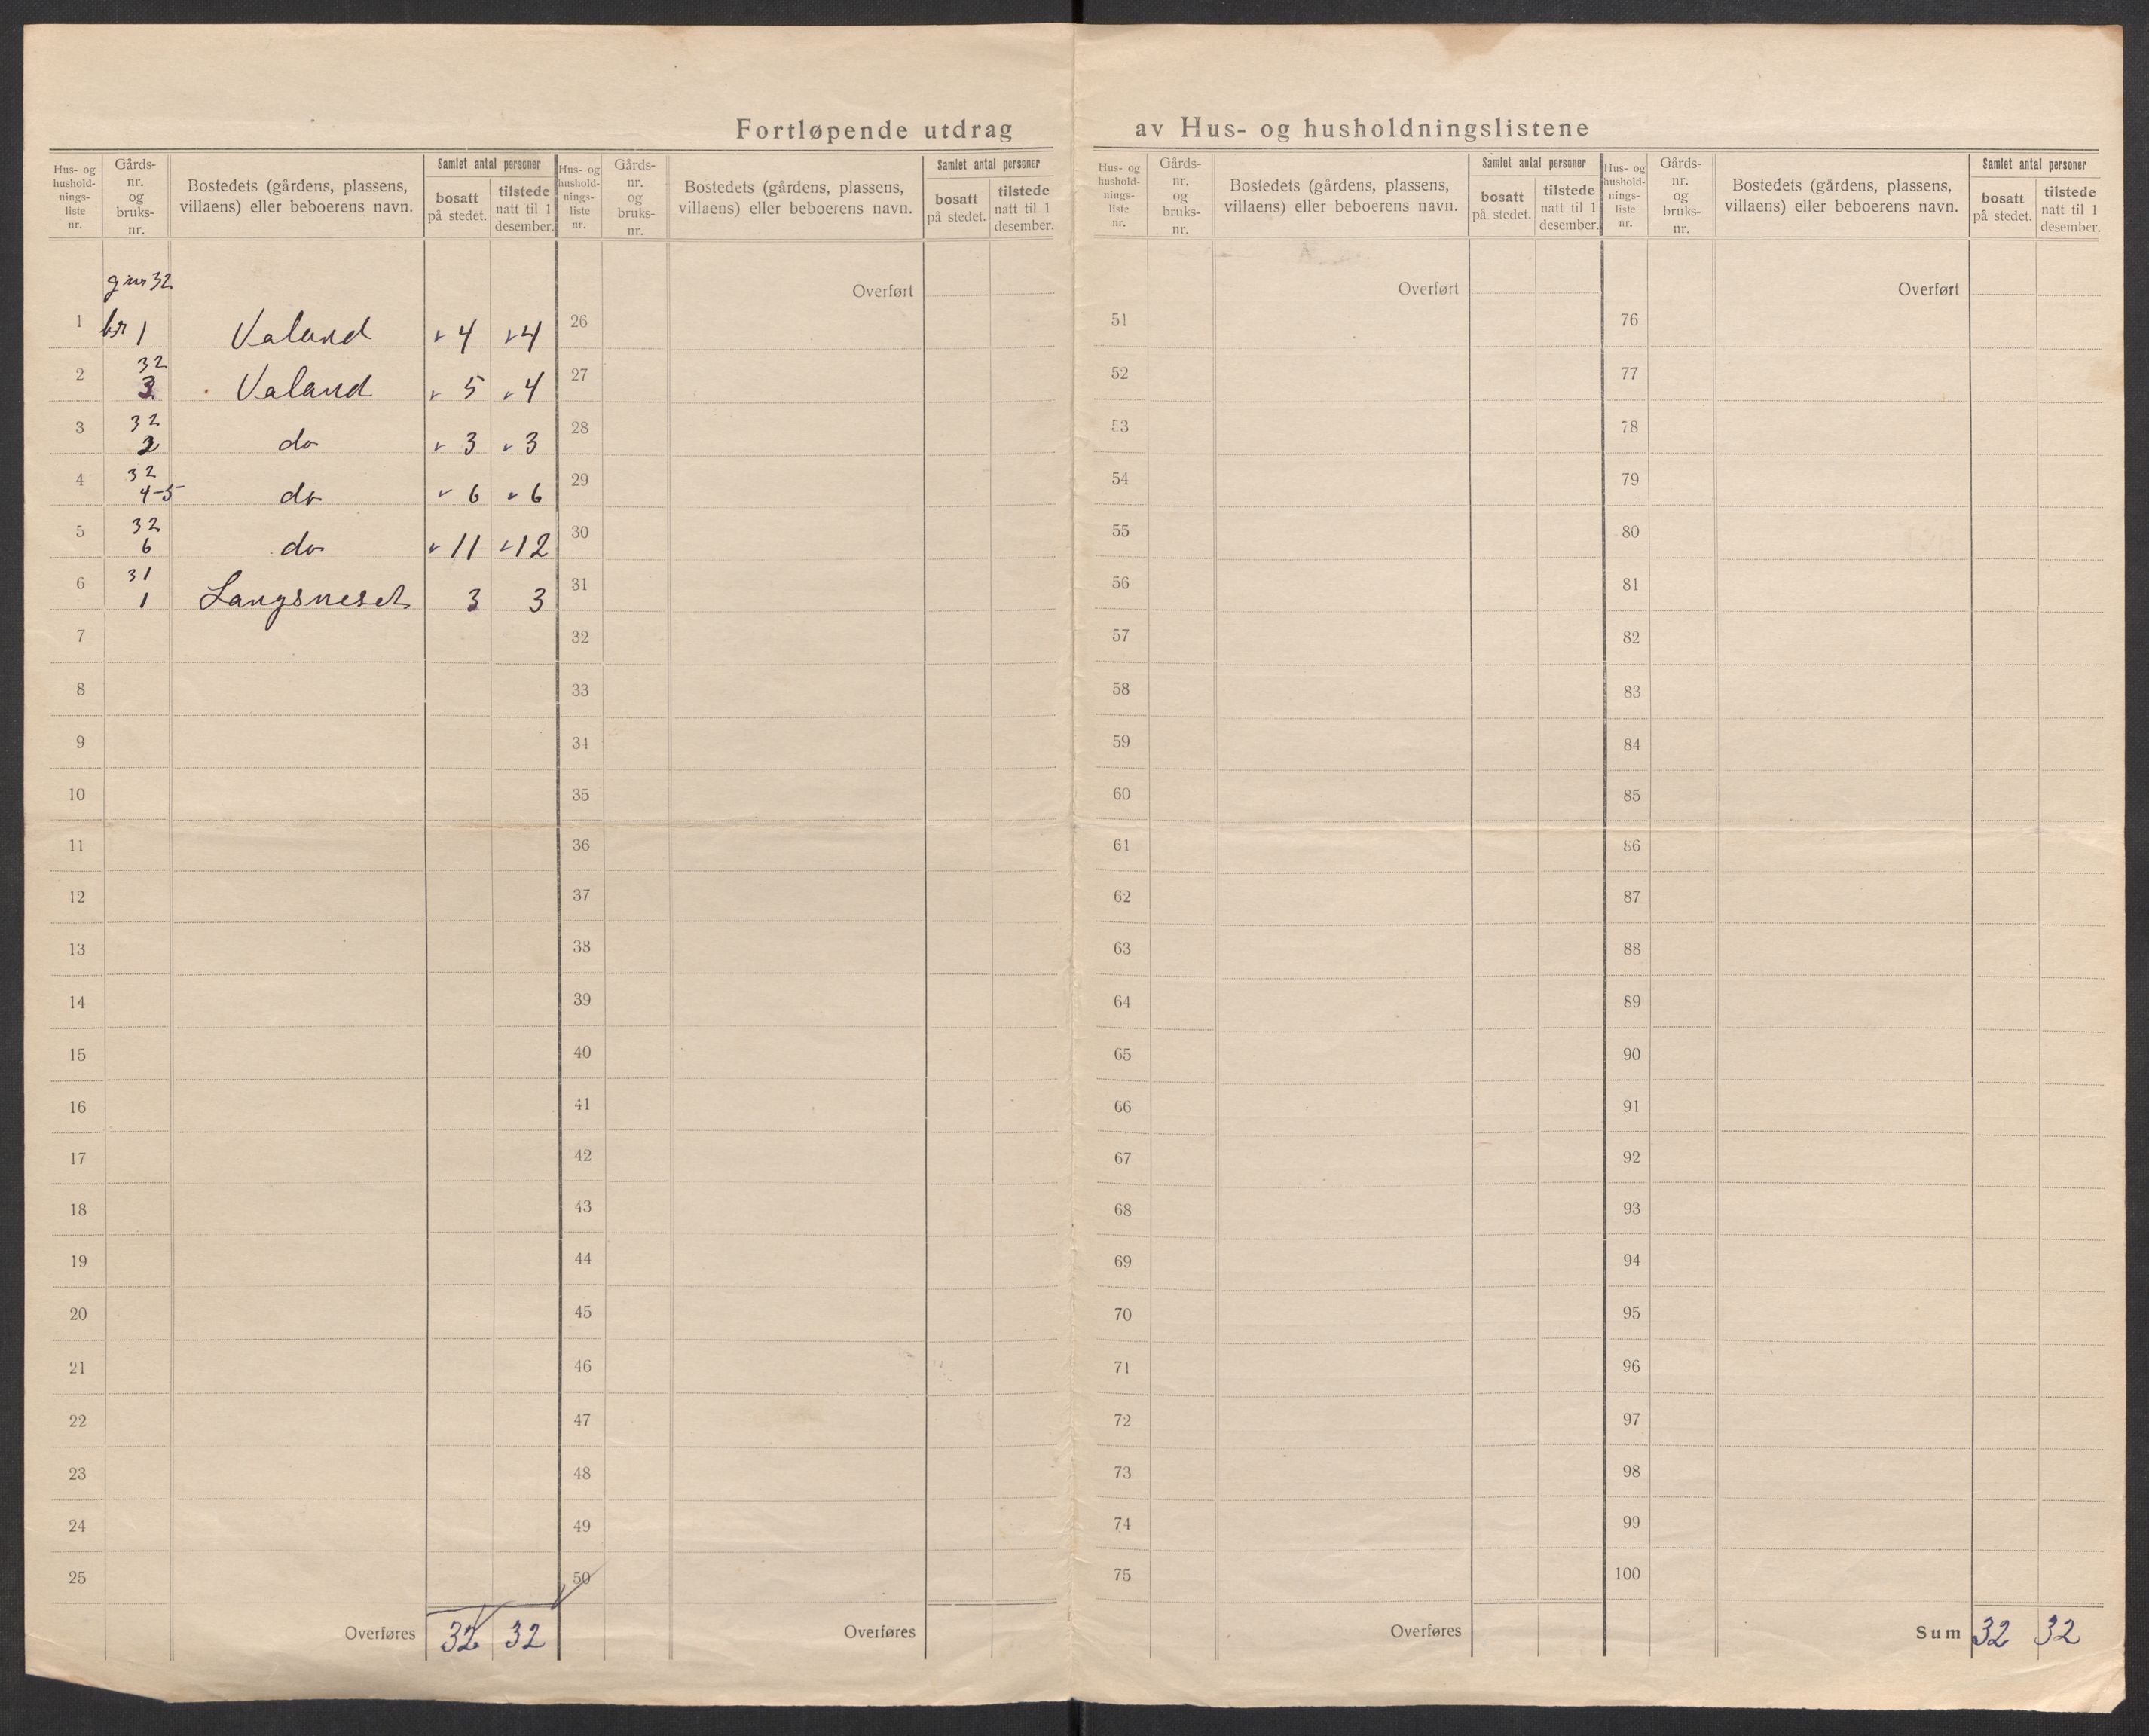 Fortløpende utdrag av Hus- og husholdningslistene
Hus- og hushold-nings-liste nr. | Gårds-nr. og bruks-nr. | Bostedets (gårdens, plassens, villaens) eller beboerens navn. | Samlet antal personer | bosatt på stedet. | tilstede natt til 1 desember.
Hus- og hushold-nings-liste nr. | Gårds-nr. og bruks-nr. | Bostedets (gårdens, plassens, villaens) eller beboerens navn. | Samlet antal personer | bosatt på stedet. | tilstede natt til 1 desember.
Hus- og hushold-nings-liste nr. | Gårds-nr. og bruks-nr. | Bostedets (gårdens, plassens, villaens) eller beboerens navn. | Samlet antal personer | bosatt på stedet. | tilstede natt til 1 desember.
Hus- og hushold-nings-liste nr. | Gårds-nr. og bruks-nr. | Bostedets (gårdens, plassens, villaens) eller beboerens navn. | Samlet antal personer | bosatt på stedet. | tilstede natt til 1 desember.
gnr 32
1 br 1 Valand 4 4
2 32 3 Valand 5 4
3 32 2 do 3 3
4 32 4-5 do 6 6
5 32 6 do 11 12
6 31 1 Langsneset 3 3
7
8
9
10
11
12
13
14
15
16
17
18
19
20
21
22
23
24
25
Overføres 32 32
Overført
26
27
28
29
30
31
32
33
34
35
36
37
38
39
40
41
42
43
44
45
46
47
48
49
50
Overføres
Overført
51
52
53
54
55
56
57
58
59
60
61
62
63
64
65
66
67
68
69
70
71
72
73
74
75
Overføres
Overført
76
77
78
79
80
81
82
83
84
85
86
87
88
89
90
91
92
93
94
95
96
97
98
99
100
Sum 32 32